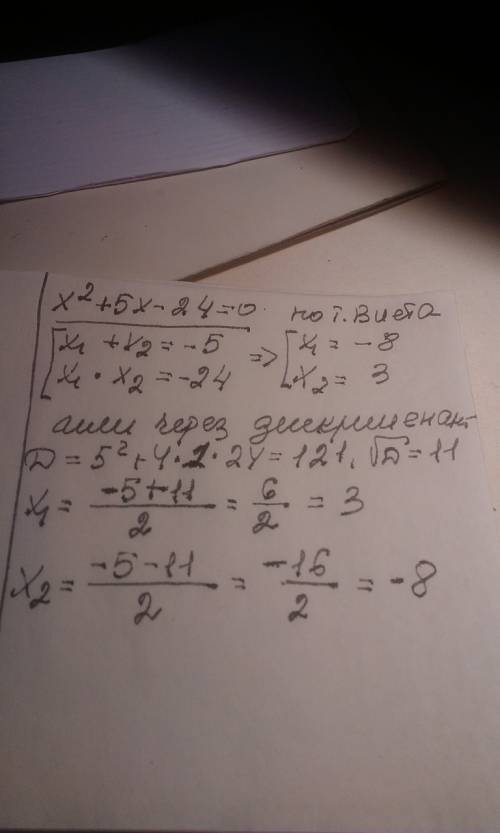 x²+5x-24=0 по т. Виета
[x₁ + x₂ = -5 => [x₁ = -8
x₁ · x₂ = -24 x₂ = 3
или через дискременант
D = 5²+4·1·24 = 121, √D = 11
x₁ = (-5+11)/2 = 6/2 = 3
x₂ = (-5-11)/2 = -16/2 = -8